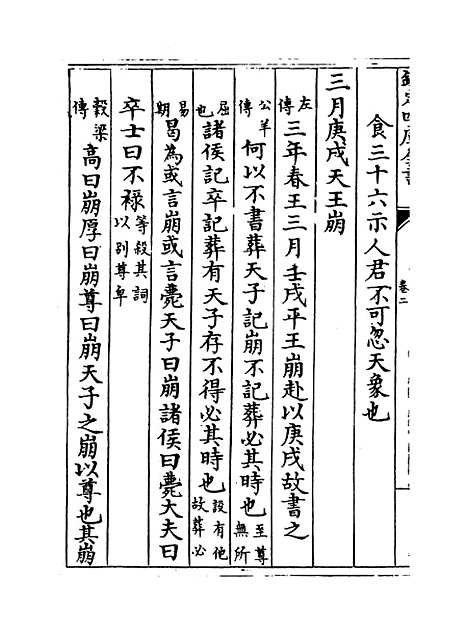 欽定四庫全書
卷二
食三十六示人君不可忽天象也
三月庚戌天王崩
左傳三年春王三月壬戌平王崩赴以庚戌故書之
公羊傳何以不書葬天子記崩不記葬必其時也至尊無所
屈也諸侯記卒記葬有天子存不得必其時也設有他故葬必
易期曷為或言崩或言薨天子曰崩諸侯曰薨大夫曰
卒士曰不祿等殺其詞以別尊卑
穀梁傳高曰崩厚曰崩尊曰崩天子之崩以尊也其崩